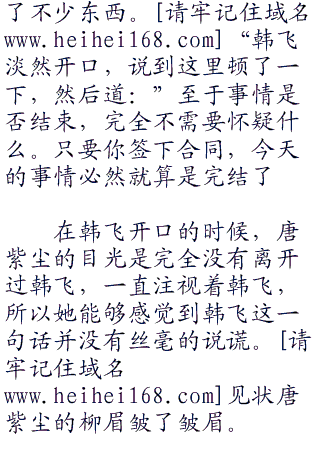 了不少东西。[请牢记住域名
www.heihei168.com] “韩飞
淡然开口，说到这里顿了一
下，然后道：”至于事情是
否结束，完全不需要怀疑什
么。只要你签下合同，今天
的事情必然就算是完结了
在韩飞开口的时候，唐
紫尘的目光是完全没有离开
过韩飞，一直注视着韩飞，
所以她能够感觉到韩飞这一
句话并没有丝毫的说谎。[请
牢记住域名
www.heihei168.com]见状唐
紫尘的柳眉皱了皱眉。